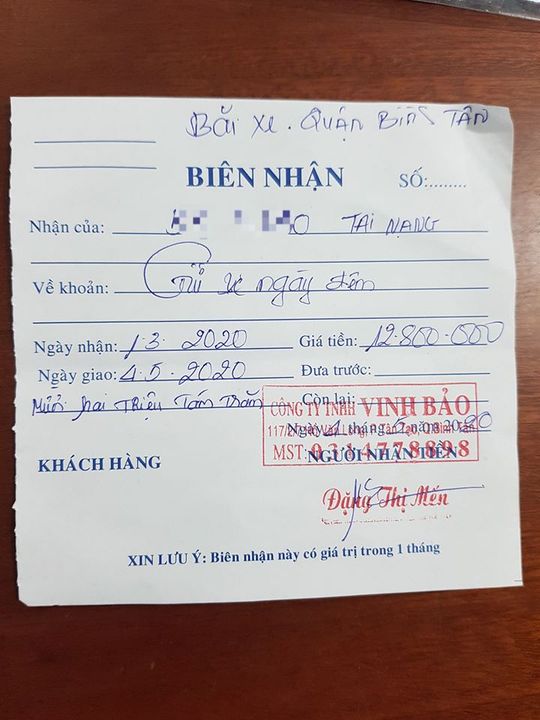 BÃI XE. QUẬN BÌNH TÂN
BIÊN NHẬN
SỐ:........
Nhận của: TAI NẠNG
Về khoản: Giữ xe ngày đêm
Ngày nhận: 1.3.2020 Giá tiền: 12.800.000
Ngày giao: 4.5.2020 Đưa trước:
Mười hai Triệu Tám Trăm
Còn lại:
CÔNG TY TNHH VINH BẢO
Tân Tạo, Q.Bình Tân
Ngày 21 tháng 5 năm 2020
MST: 0314778898
KHÁCH HÀNG
NGƯỜI NHẬN TIỀN
Đặng Thị Mến
XIN LƯU Ý: Biên nhận này có giá trị trong 1 tháng